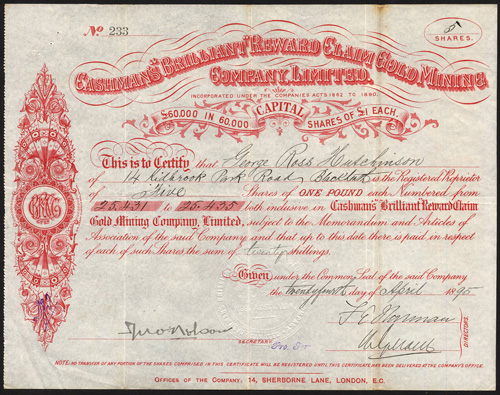 No 233
5
SHARES.
CASHMAN'S "BRILLIANT" REWARD CLAIM GOLD MINING
COMPANY, LIMITED.
INCORPORATED UNDER THE COMPANIES ACTS 1862 TO 1890.
CAPITAL
£60,000 IN 60,000 SHARES OF £1 EACH.
This is to Certify that George Ross Hutchinson
of 14 Kidbrook Park Road Blackheath is the Registered Proprietor
of Five Shares of ONE POUND each Numbered from
25,431 to 25,435 both inclusive in Cashman's "Brilliant" Reward Claim
Gold Mining Company, Limited, subject to the Memorandum and Articles of
Association of the said Company and that up to this date there is paid in respect
of each of such Shares the sum of twenty shillings.
Given under the Common Seal of the said Company
the twentyfourth day of April 1895
SECRETARY
DIRECTORS.
NOTE: NO TRANSFER OF ANY PORTION OF THE SHARES COMPRISED IN THIS CERTIFICATE WILL BE REGISTERED UNTIL THIS CERTIFICATE HAS BEEN DELIVERED AT THE COMPANY'S OFFICE.
OFFICES OF THE COMPANY: 14, SHERBORNE LANE, LONDON, E.C.